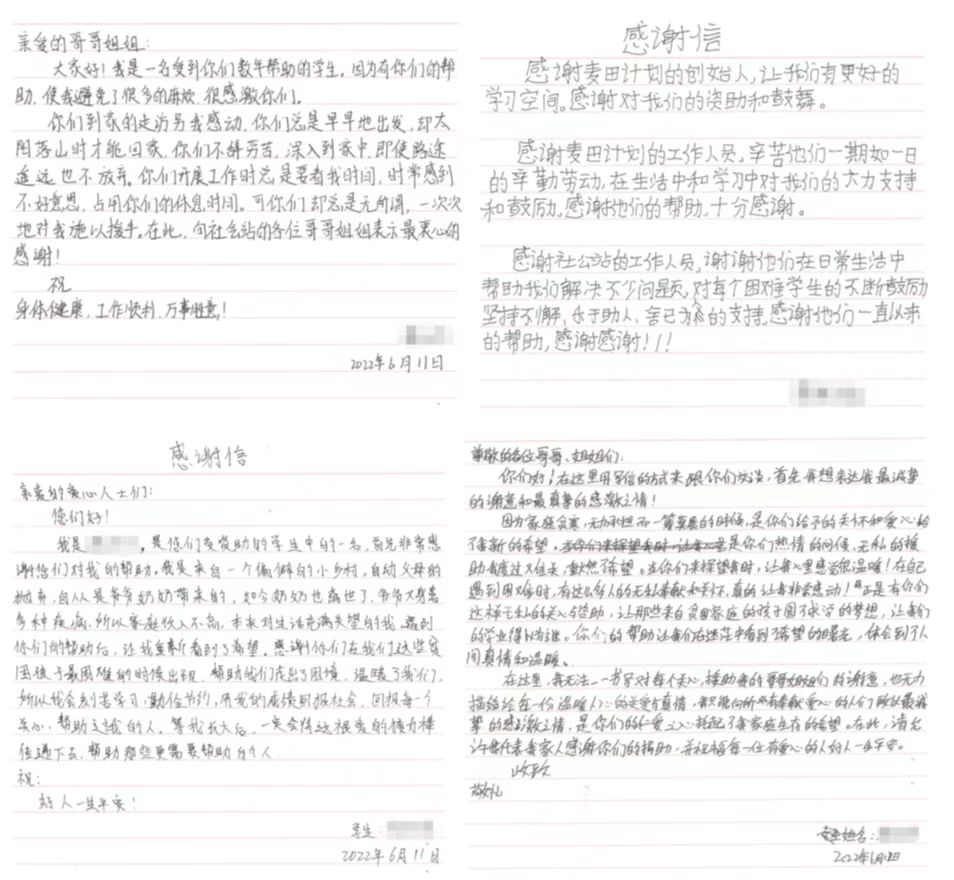 亲爱的哥哥姐姐:
大家好!我是一名受到你们数年帮助的学生。因为有你们的帮
助,使我避免了很多的麻烦,很感激你们。
你们到家的走访另我感动,你们总是早早地出发,却太
阳落山时才能回家,你们不辞劳苦,深入到家中,即使路途
遥远也不放弃。你们开展工作时总是要看我时间,时常感到
不好意思,占用你们的休息时间。可你们却总是无所谓,一次次
地对我施以援手。在此,向社会站的各位哥哥姐姐表示最衷心的
感谢!
祝
身体健康,工作顺利,万事胜意!
2022年6月11日
感谢信
感谢麦田计划的创始人,让我们有更好的
学习空间。感谢对我们的资助和鼓舞。
感谢麦田计划的工作人员,辛苦他们一期如一日
的辛勤劳动,在生活中和学习中对我们的大力支持
和鼓励,感谢他们的帮助,十分感谢。
感谢社公站的工作人员,谢谢他们在日常生活中
帮助我们解决不少问题,对每个困难学生的不断鼓励
坚持不懈、乐于助人、舍己为的支持,感谢他们一直以来
的帮助,感谢感谢!!!
感谢信
亲爱的爱心人士们:
您们好!
我是,是您们变资助的学生中的一名,首先非常感
谢您们对我的帮助。我是来自一个偏僻的小乡村,自幼父母的
抛弃,自从是爷爷奶奶带来的,如今奶奶也离世了,爷爷又身患
多种疾病,所以家庭收入不高,本来对生活充满失望的我,遇到
你们的帮助后,让我重新看到了希望。感谢你们在我们这些贫
困孩子最困难的时候出现,帮助我们走出了困境,温暖了我们,
所以我会刻苦学习,勤俭节约,用我的成绩回报社会,回报每一个
关心、帮助过我的人,等我长大后,一定会传这根爱的接力棒
传递下去,帮助那些更需要帮助的人
祝:
好人一生平安!
学生:
2022年6月11日
尊敬的各位哥哥、姐姐们:
你们好!在这里用写信的方式来跟你们交流,首先我想表达我最诚挚
的谢意和最真挚的感激之情!
因为家庭贫寒,无力承担的时候,是你们给予的关怀和爱心给
了我新的希望。是你们热情的问候,无私的援
助。当你们来探望我时,让我心里感觉很温暖!在自己
遇到困难时,有这么多人的无私奉献和关怀,真的让我非常感动!正是有你们
这样无私的关心与帮助,让那些来自贫困家庭的孩子圆了求学的梦想,让我们
的学业得以为继。你们的帮助让我们在迷茫中看到了希望的曙光,体会到了人
间真情和温暖。
在这里,我无法一一书写对每个关心、援助我的的谢意,也无力
描绘这每一份温暖人心的关爱与真情,有爱心的人们致以最诚
挚的感激之情,是你们的仁爱之心托起了我家庭生存的希望。在此,请允
许我代表我家人感谢你们的援助,并祝福每一位有爱心的人好人一生平安。
此致
敬礼
姓名:
2022年6月12日